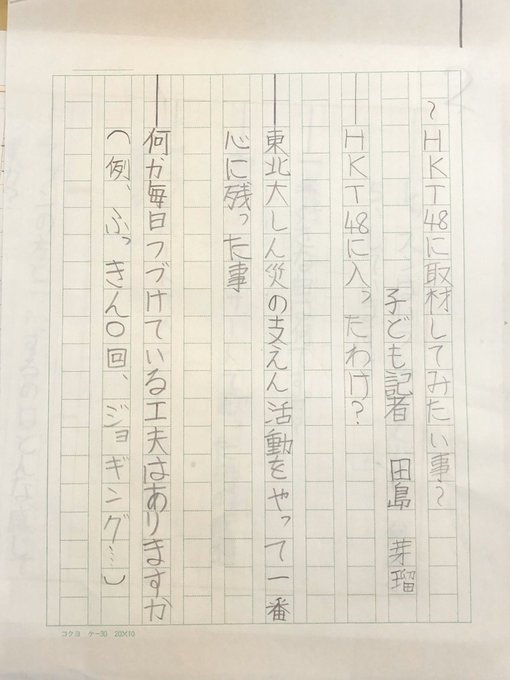 ～HKT48に取材してみたい事～
子ども記者　田島　芽瑠
―HKT48に入ったわけ？
―東北大しん災の支えん活動をやって一番
心に残った事
―何か毎日つづけている工夫はありますか
（例、ふっきん〇回、ジョギング…）
コクヨ　ケー30　20×10